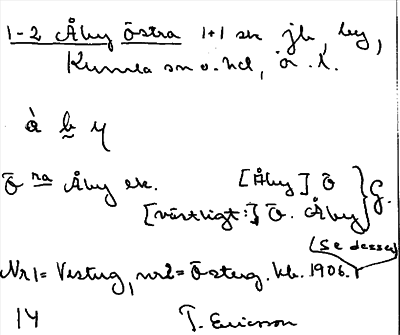 1-2 Åby Östra 1+1 sk jb, by,
Kumla sn o. hd, ö. l.
å b y
Ö ra Åby sk. [Åby] Ö } G.
[värtligt:] Ö. Åby
(Se dessa)
Nr 1 = Vestug, nr 2 = Österg. kb. 1906.
14 T. Ericsson